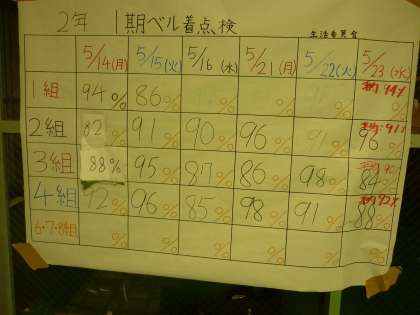 2年 1期ベル着点検
生活委員会
5/14(月) 5/15(火) 5/16(水) 5/21(月) 5/22(火) 5/23(水)
1組 94% 86% % % %
2組 82% 91% 90% 96% 91% 96%
3組 88% 95% 87% 86% 98% 84%
4組 92% 96% 85% 98% 91% 88%
6・7・8組 % % % % % %